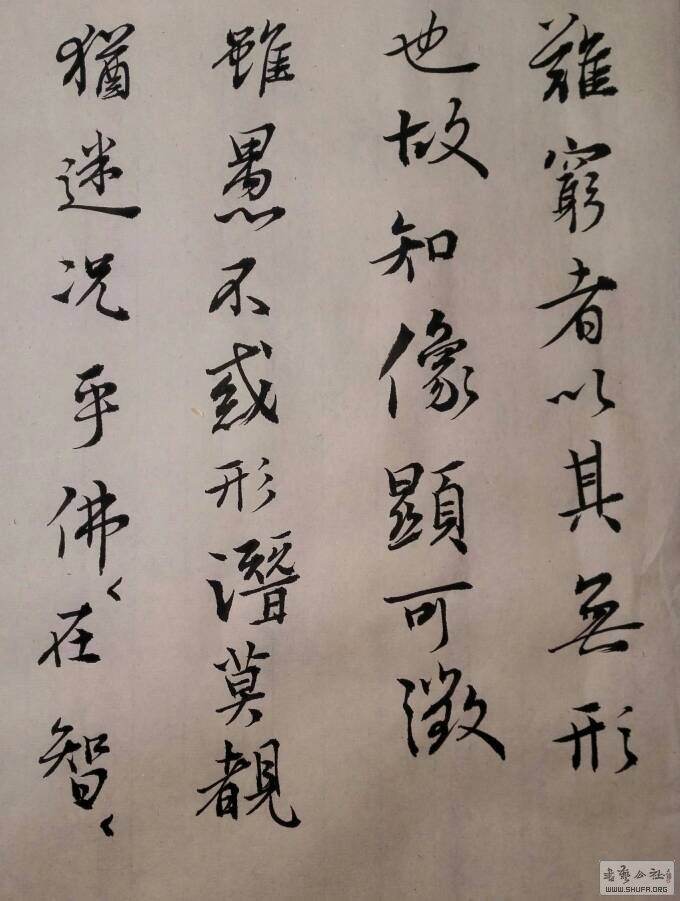 難窮者以其無形
也故知像顯可徵
雖愚不惑形潛莫覩
猶迷况乎佛在智
書藝公社
WWW.SHUFA.ORG